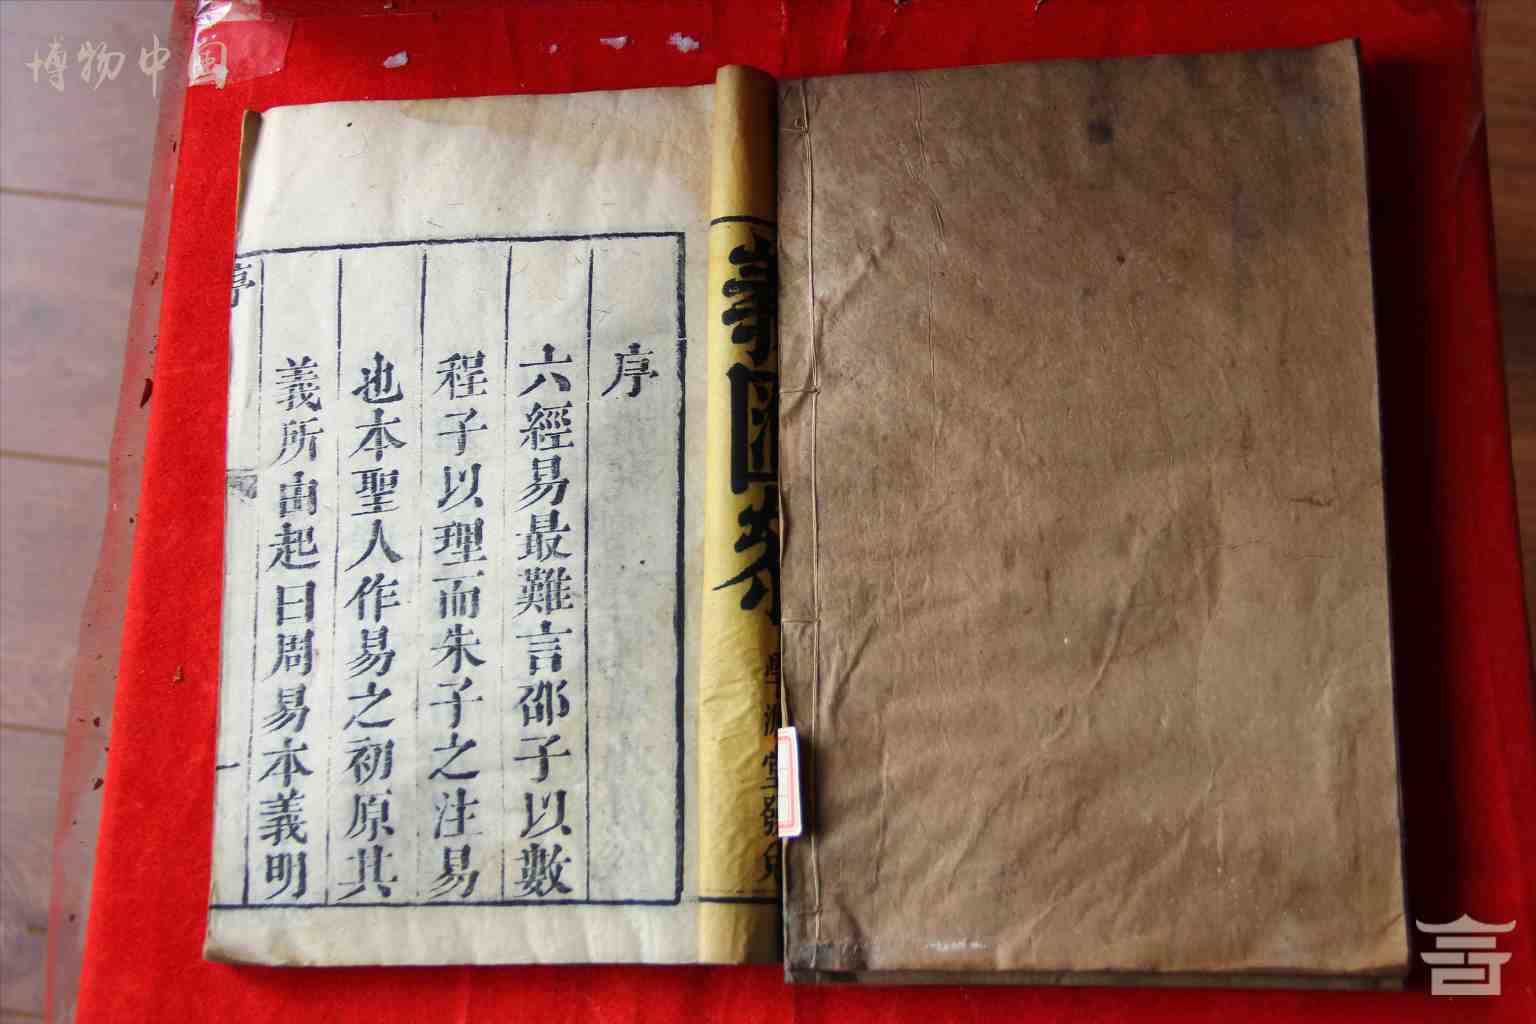 博物中国
序
六經易最難言邵子以數
程子以理而朱子之注易
也本聖人作易之初原其
義所由起曰周易本義明
序
一
義匯參